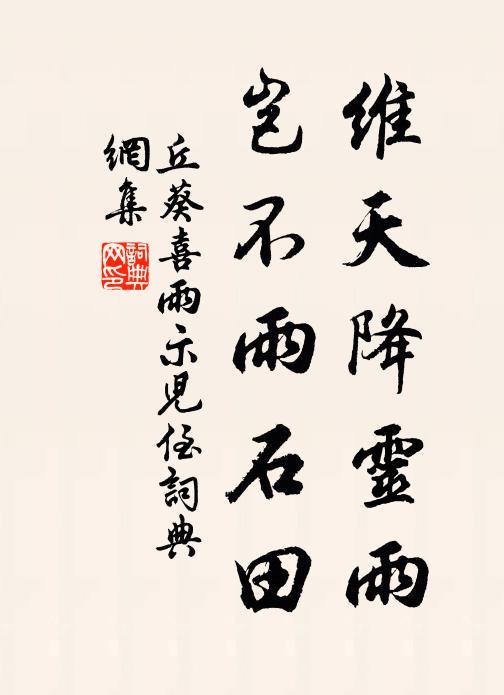 維天降靈雨
豈不雨石田
丘葵喜雨示兒侄詞典
網集
詞典網印